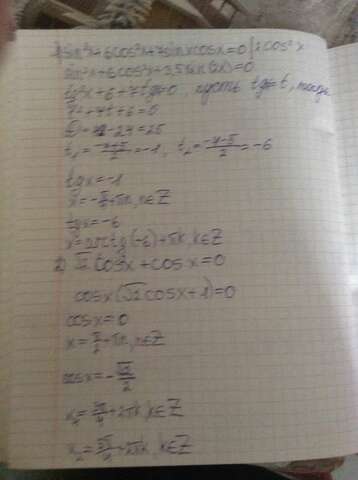 1) sin²x+6cos²x+7sinxcosx=0 |:cos²x
sin²x+6cos²x+3,5sin(2x)=0
tg²x+6+7tgx=0, пусть tgx=t, тогда
t²+7t+6=0
D=49-24=25
t₁=(-7+5)/2=-1, t₂=(-7-5)/2=-6
tgx=-1
x=-π/4+πk, k∈Z
tgx=-6
x=arctg(-6)+πk, k∈Z
2) √2cos²x+cosx=0
cosx(√2cosx+1)=0
cosx=0
x=π/2+πk, k∈Z
cosx=-√2/2
x₁=3π/4+2πk, k∈Z
x₂=5π/4+2πk, k∈Z